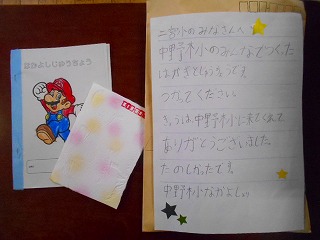 なかよしじゆうちょう
二宮小のみなさんへ
中野木小のみんなでつくった
つかってください。
きょうは、中野木小に来てくれて
ありがとうございました。
たのしかったです。
中野木小なかよしより